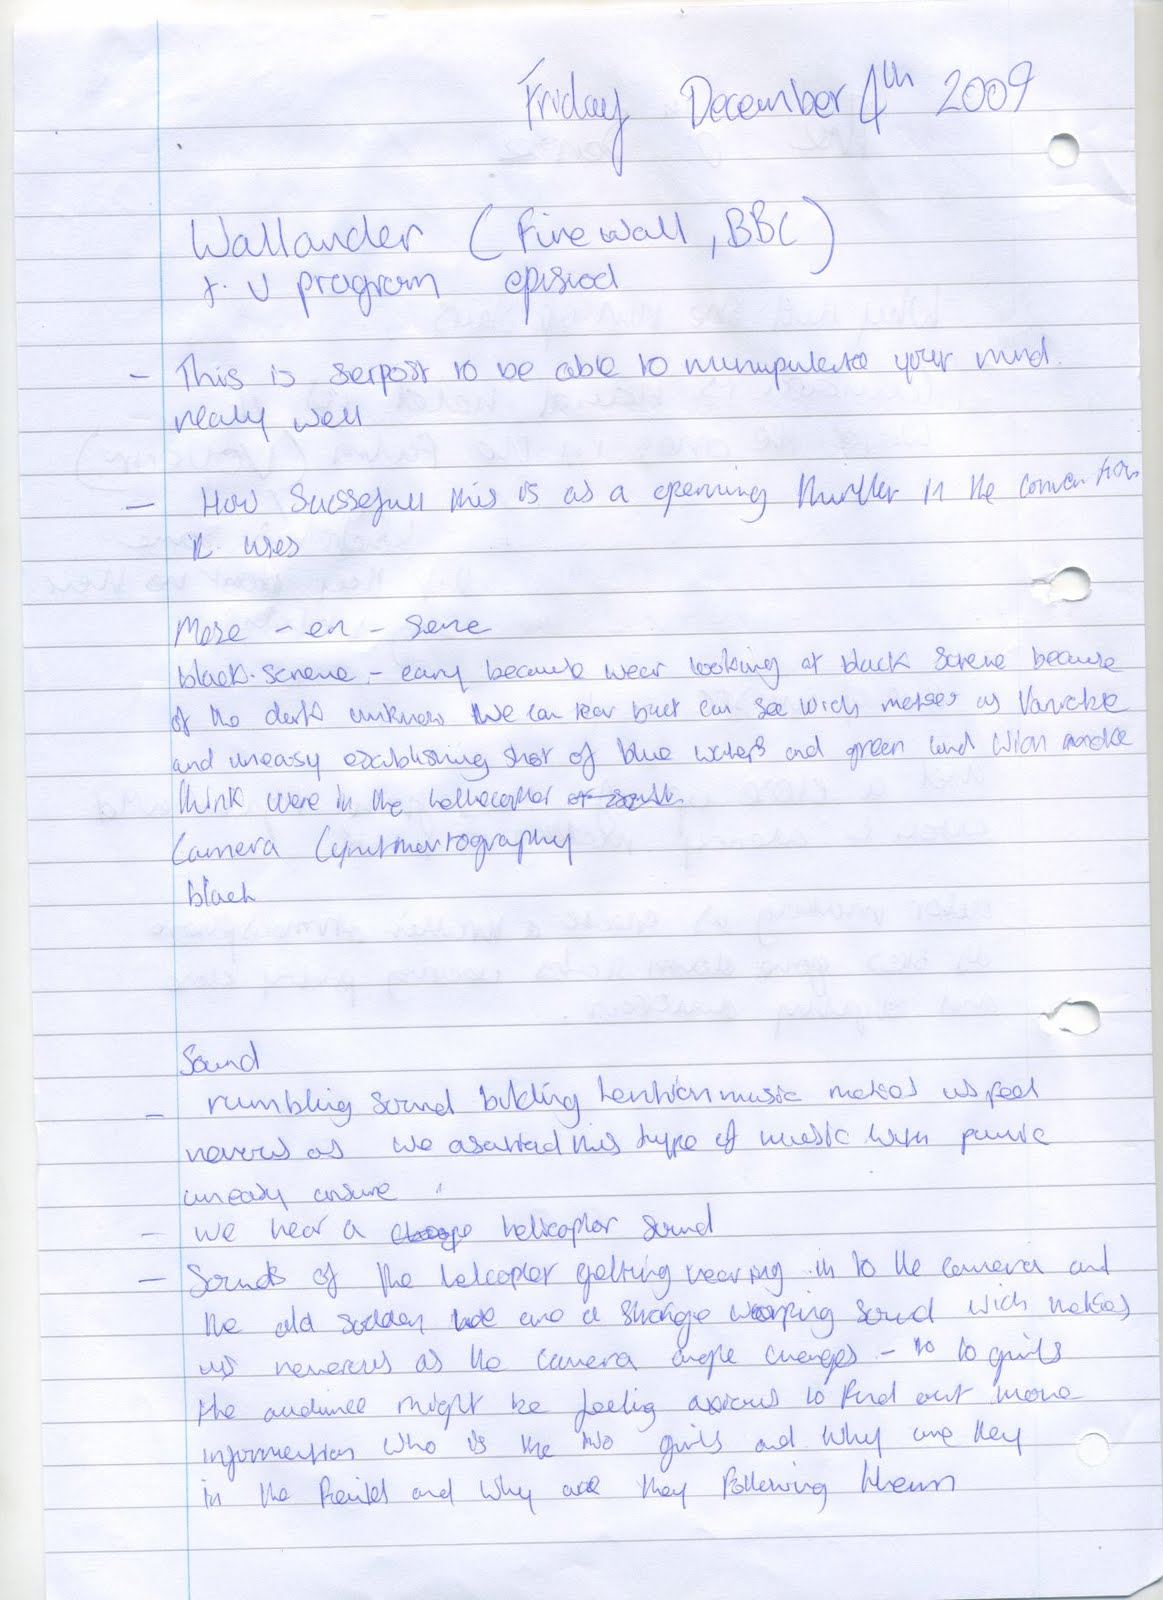 Friday December 4th 2009
Wallander (Firewall, BBC)
t.v program episiod
- This is serpost to be able to munupulate your mind
realy well
- How Sucssefull this is as a opening thriller in the convention
it uses
Mese - en - Sene
black screne - eary because wear looking at black screne because
of the dark unknown we can hear but can see wich makes us
and uneasy establishing shot of blue waters and green land wich make
think were in the hellecopter
Camera Cynimertography
black
Sound
- rumbling sound bulding tention music makes us feel
nervers as we asartad this type of music with panic
uneasy unsure
- we hear a helicopter sound
- Sounds of the helcopter getting nearing in to the camera and
the old sudden are a strange warping sound wich makes
us nervers as the camera angle changes - to to girls
the audince might be feeling axious to find out more
information who is the two girls and why are they
in the and why are they following them